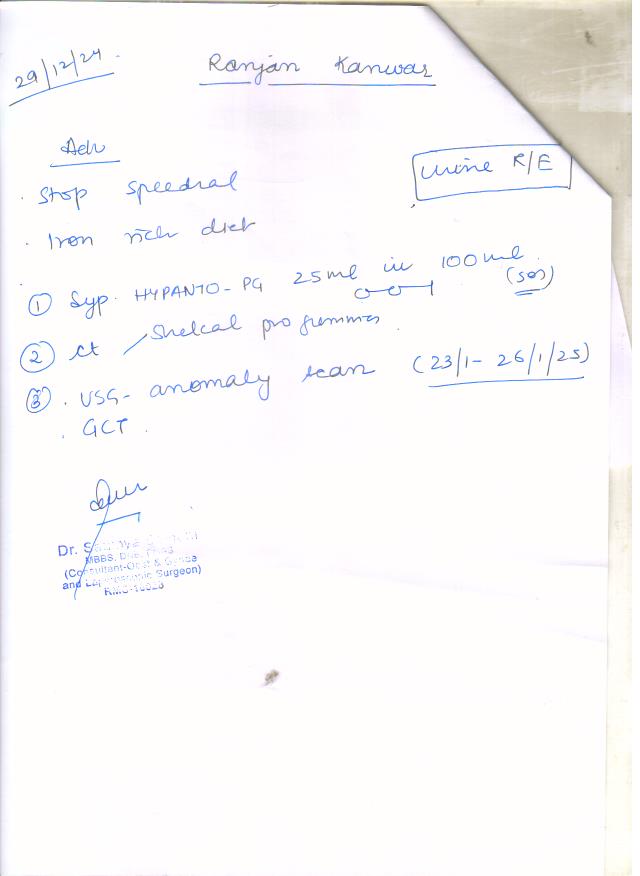 29/12/24
Ranjan Kanwar
Adv
Urine R/E
. Stop speedral
. Iron rich diet
① Syp. HYPANTO-PG 25ml in 100ml
(SOS)
② ct Shelcal pro gummies.
③ . USG- anomaly scan (23/1- 26/1/25)
. GCT.
Dr.
MBBS,
(Consultant-Obst & Gynae
and Laparoscopic Surgeon)